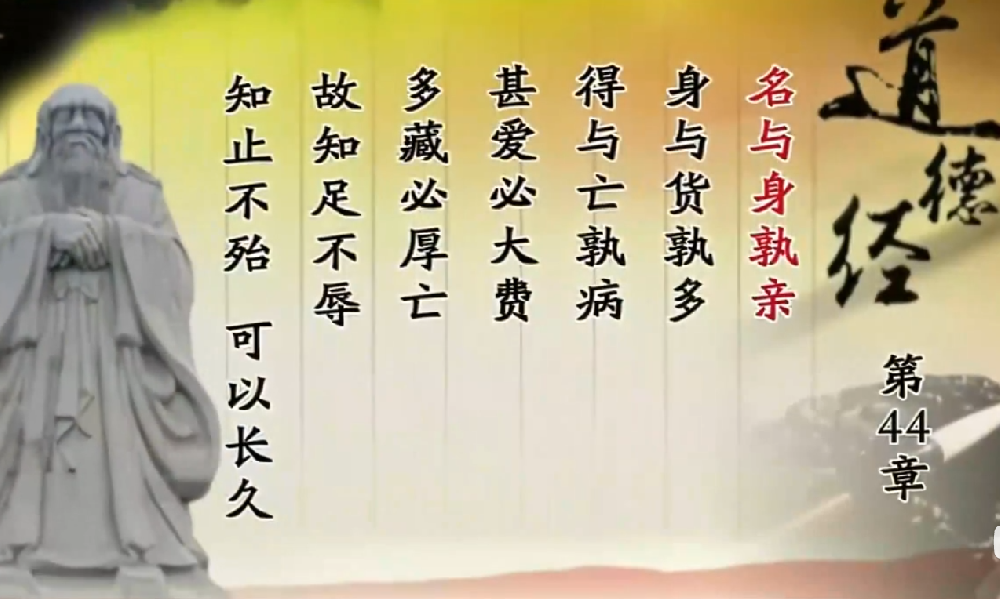 道德经
第44章
名与身孰亲
身与货孰多
得与亡孰病
甚爱必大费
多藏必厚亡
故知足不辱
知止不殆 可以长久